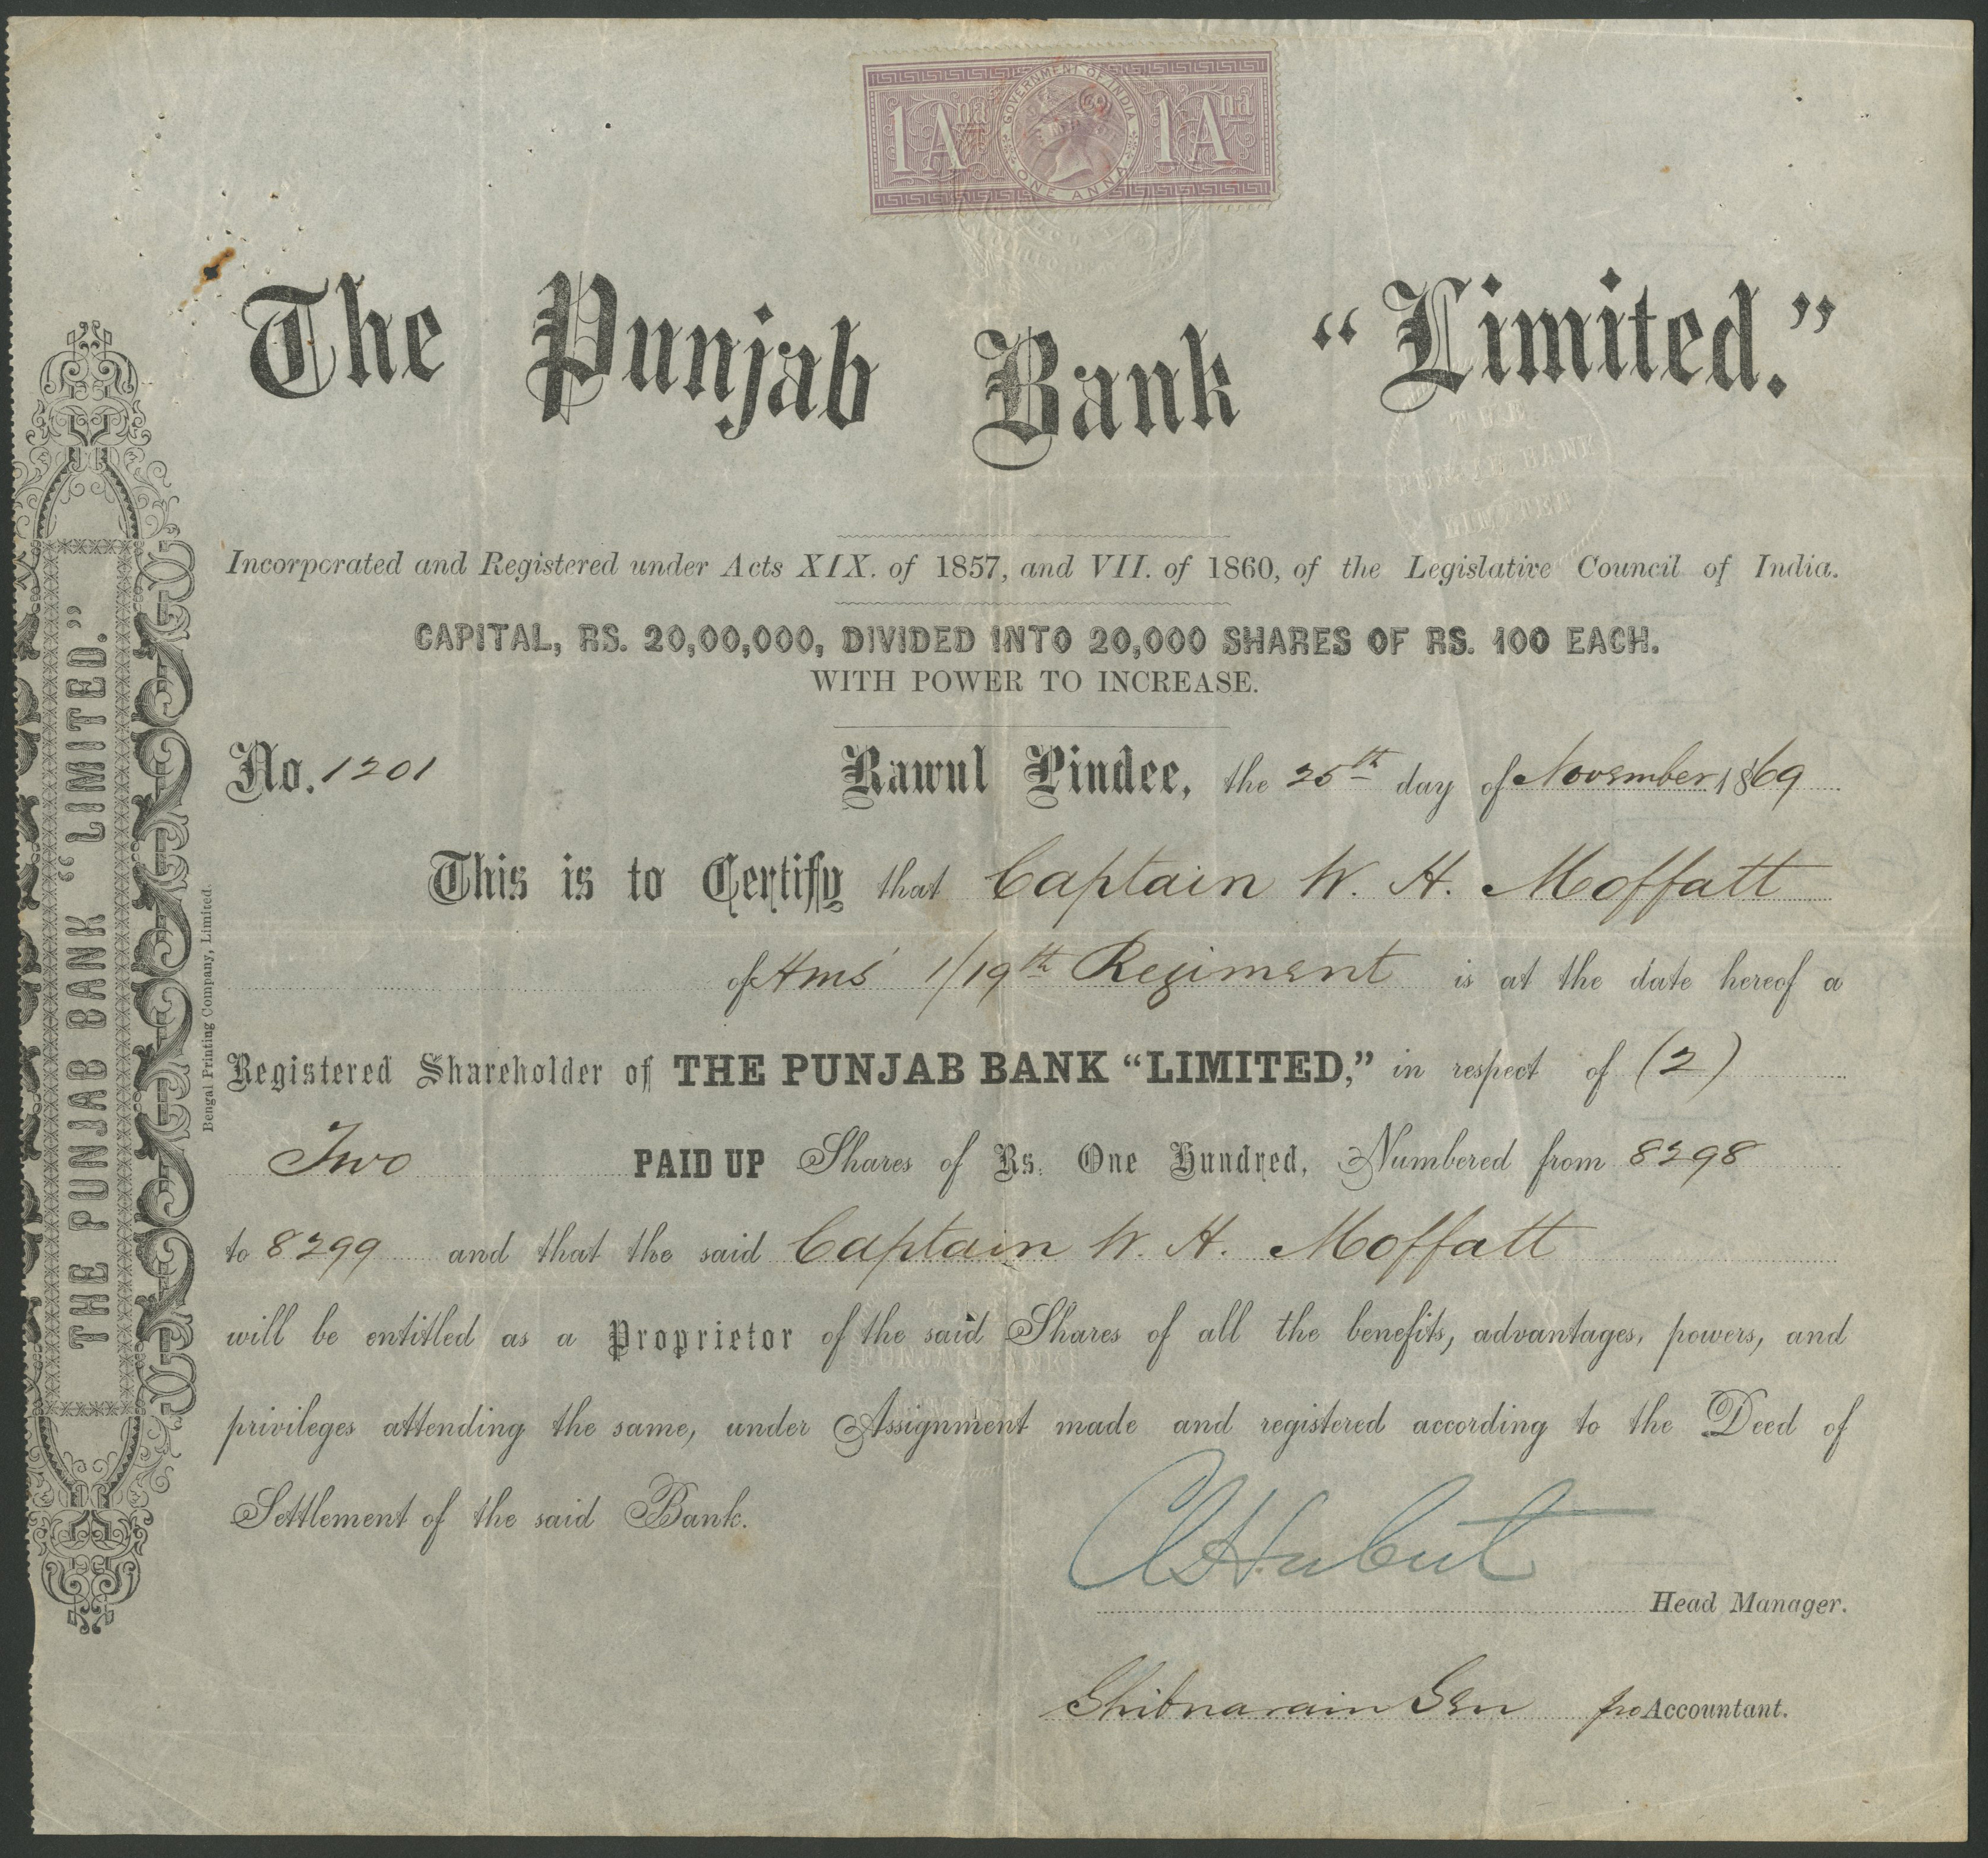 1 Ana 1 Ana
GOVERNMENT OF INDIA
ONE ANNA
The Punjab Bank "Limited."
THE
PUNJAB BANK
LIMITED
Incorporated and Registered under Acts XIX. of 1857, and VII. of 1860, of the Legislative Council of India.
CAPITAL, RS. 20,00,000, DIVIDED INTO 20,000 SHARES OF RS. 100 EACH.
WITH POWER TO INCREASE.
No. 1201 Rawul Pindee, the 25th day of November 1869
This is to Certify that Captain W. H. Moffatt
of Hms' 1/19th Regiment is at the date hereof a
Registered Shareholder of THE PUNJAB BANK "LIMITED," in respect of (2)
Two PAID UP Shares of Rs. One Hundred, Numbered from 8298
to 8299 and that the said Captain W. H. Moffatt
will be entitled as a Proprietor of the said Shares of all the benefits, advantages, powers, and
PUNJAB BANK
privileges attending the same, under Assignment made and registered according to the Deed of
Settlement of the said Bank.
Head Manager.
Shibnarain Sen pro Accountant.
THE PUNJAB BANK "LIMITED."
Bengal Printing Company, Limited.